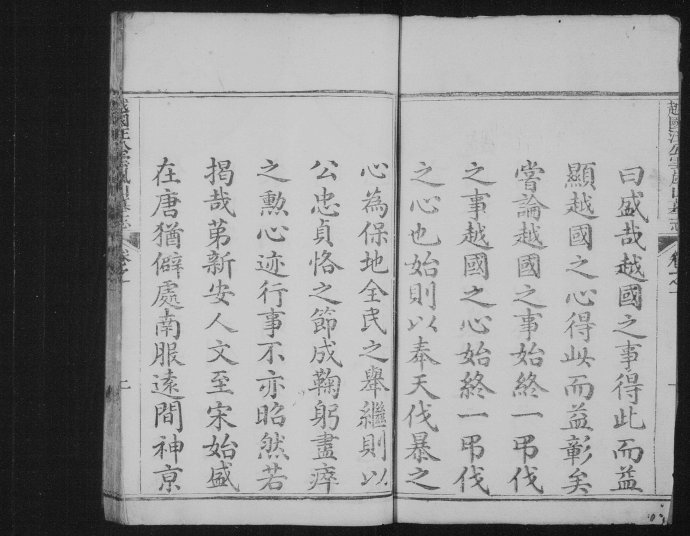 曰盛哉越國之事得此而益
顯越國之心得此而益彰矣
嘗論越國之事始終一弔伐
之事越國之心始終一弔伐
之心也始則以奉天伐暴之
心為保地全民之舉繼則以
公忠貞恪之節成鞠躬盡瘁
之勲心迹行事不亦昭然若
揭哉苐新安人文至宋始盛
在唐猶僻處南服遠間神京